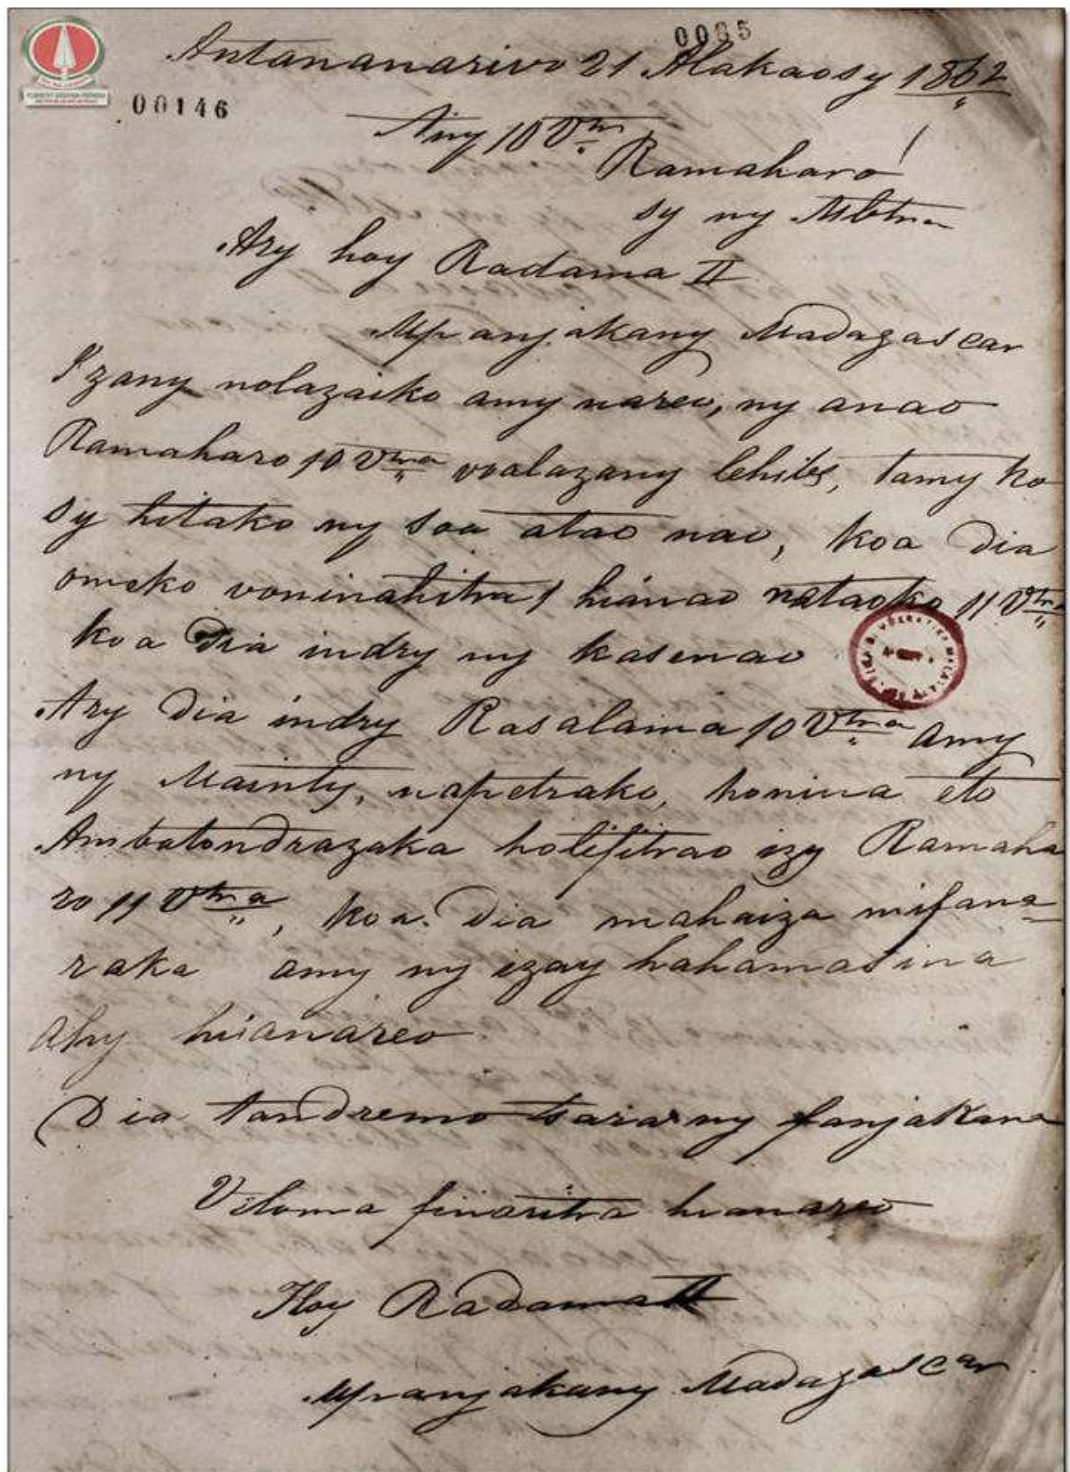 0035
Antananarivo 21 Alakaosy 1862
00146
Any 10 Vtra
Ramaharo!
sy ny Mbtra
Ary hoy Radama II
Mpanjakany Madagascar
Izany nolazaiko amy nareo, ny anao
Ramaharo 10 Vtra voalazany lehibe, tamy ko
sy hitako ny soa atao nao, koa dia
omeko voninahitra 1 hianao nataoko 11 Vtra
koa dia indry ny kasenao
Ary dia indry Rasalama 10 Vtra amy
ny Mainty, napetrako, honina eto
Ambatondrazaka holefitrao izy Ramaha
ro 11 Vtra, koa dia mahaiza mifana-
raka amy ny izay hahamasina
ahy hianareo
Dia tandremo tsara ny fanjakana
Veloma finaritra hianareo
Hoy Radama II
Mpanjakany Madagascar